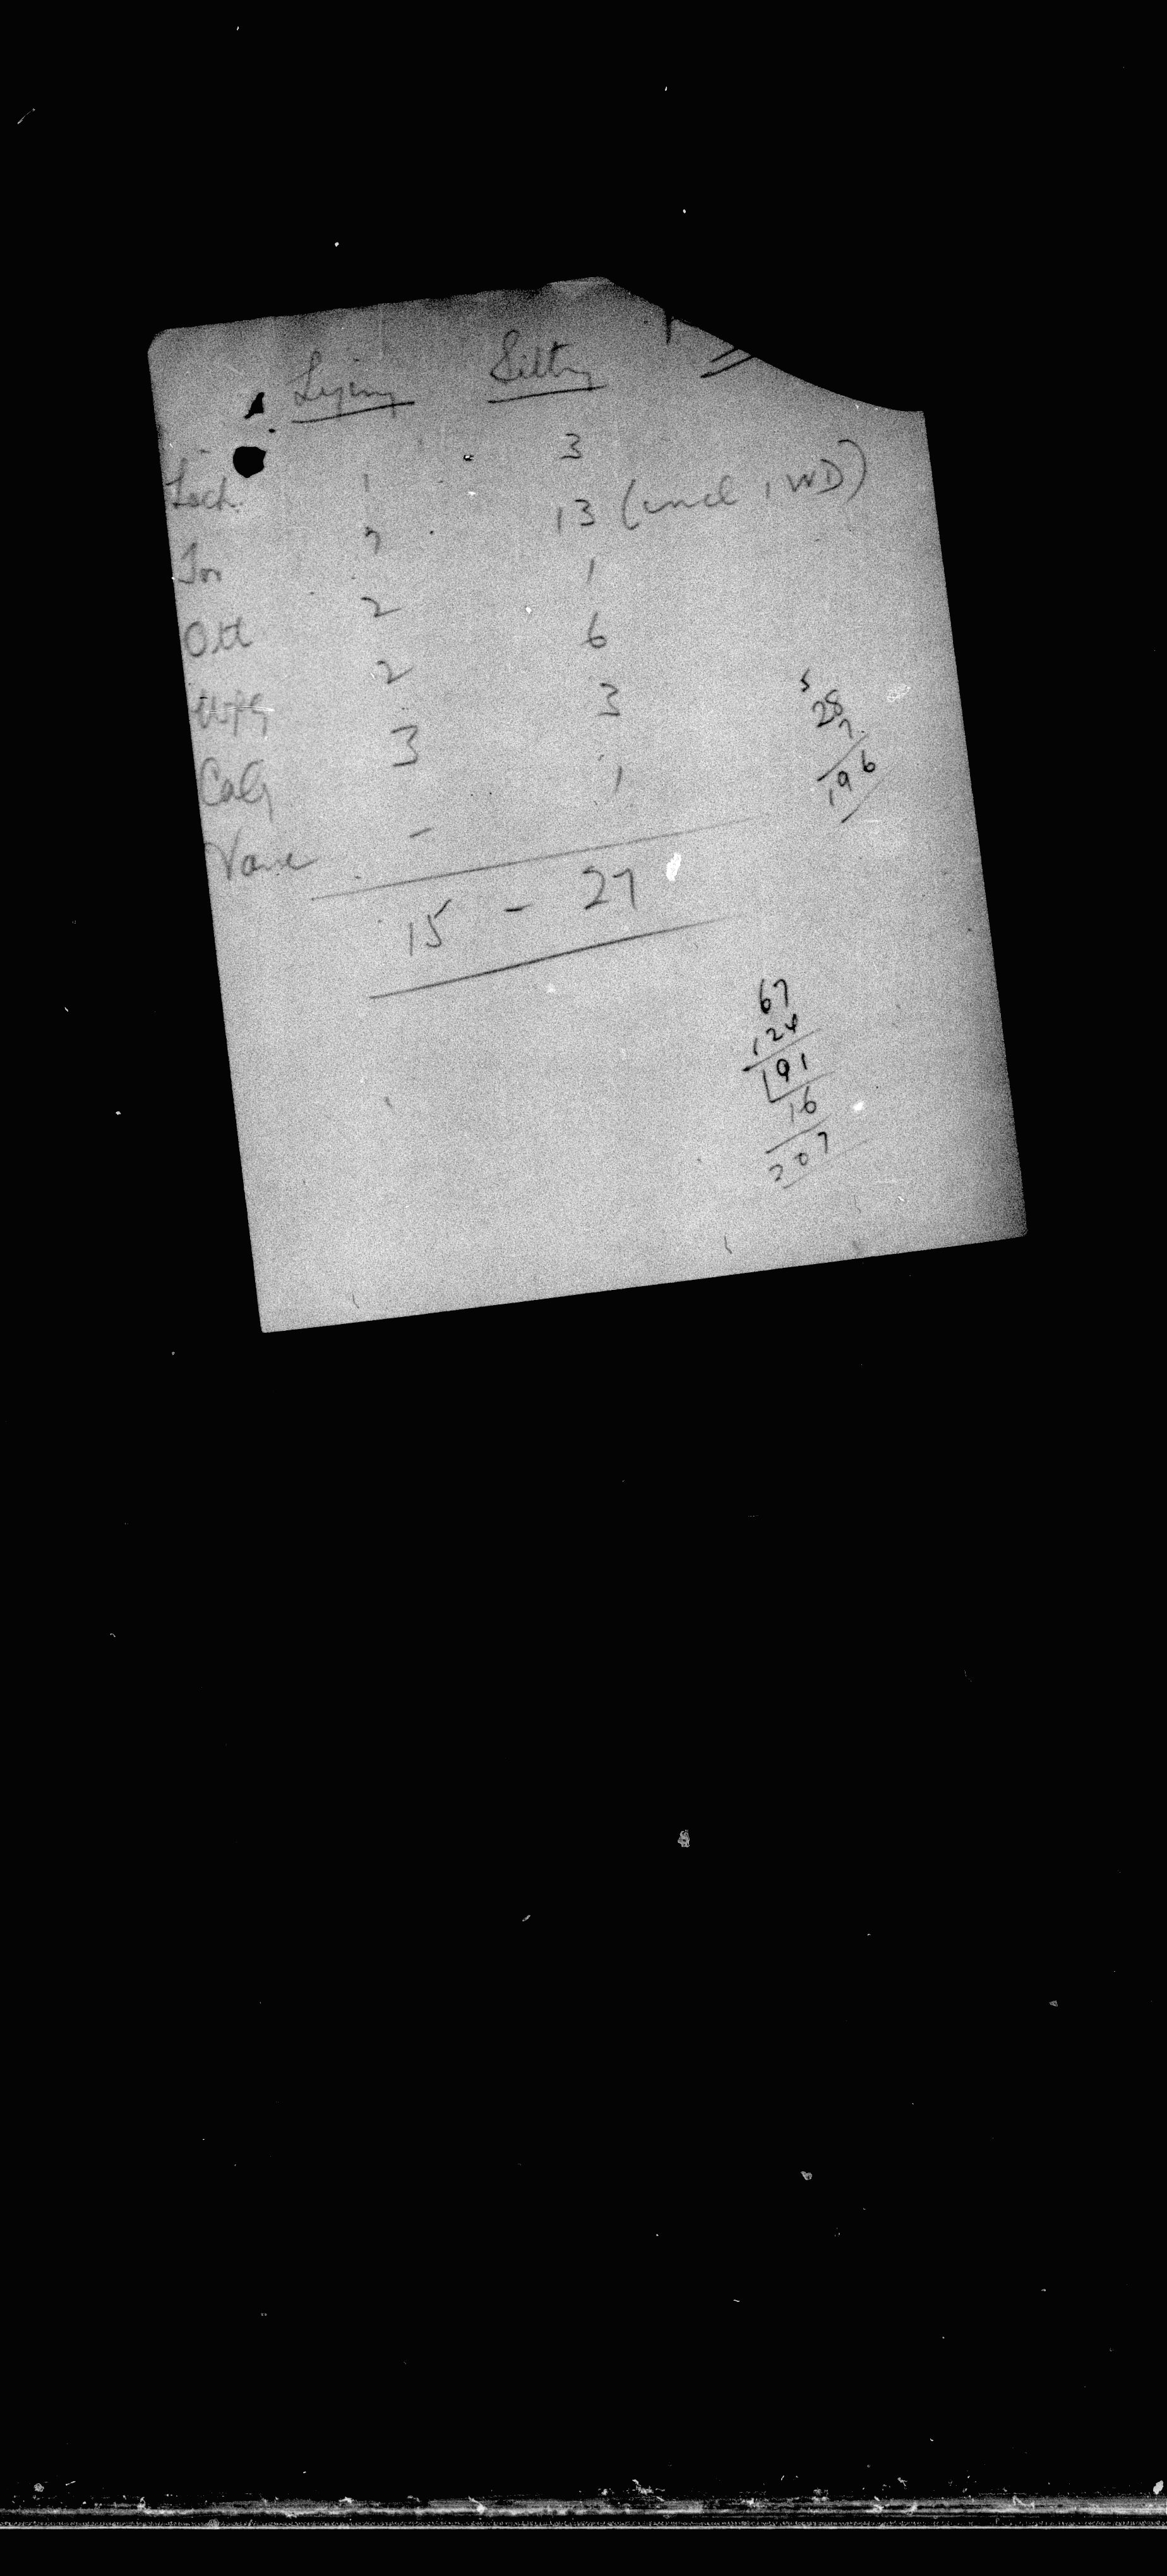 Lying Sitting
Lach. 1 3
Tor 7 13 (incl 1 WD)
Ott 2 1
Wpg 2 6
Calg 3 3
Vanc - 1
15 - 27
5
28
7
196
67
124
191
16
207